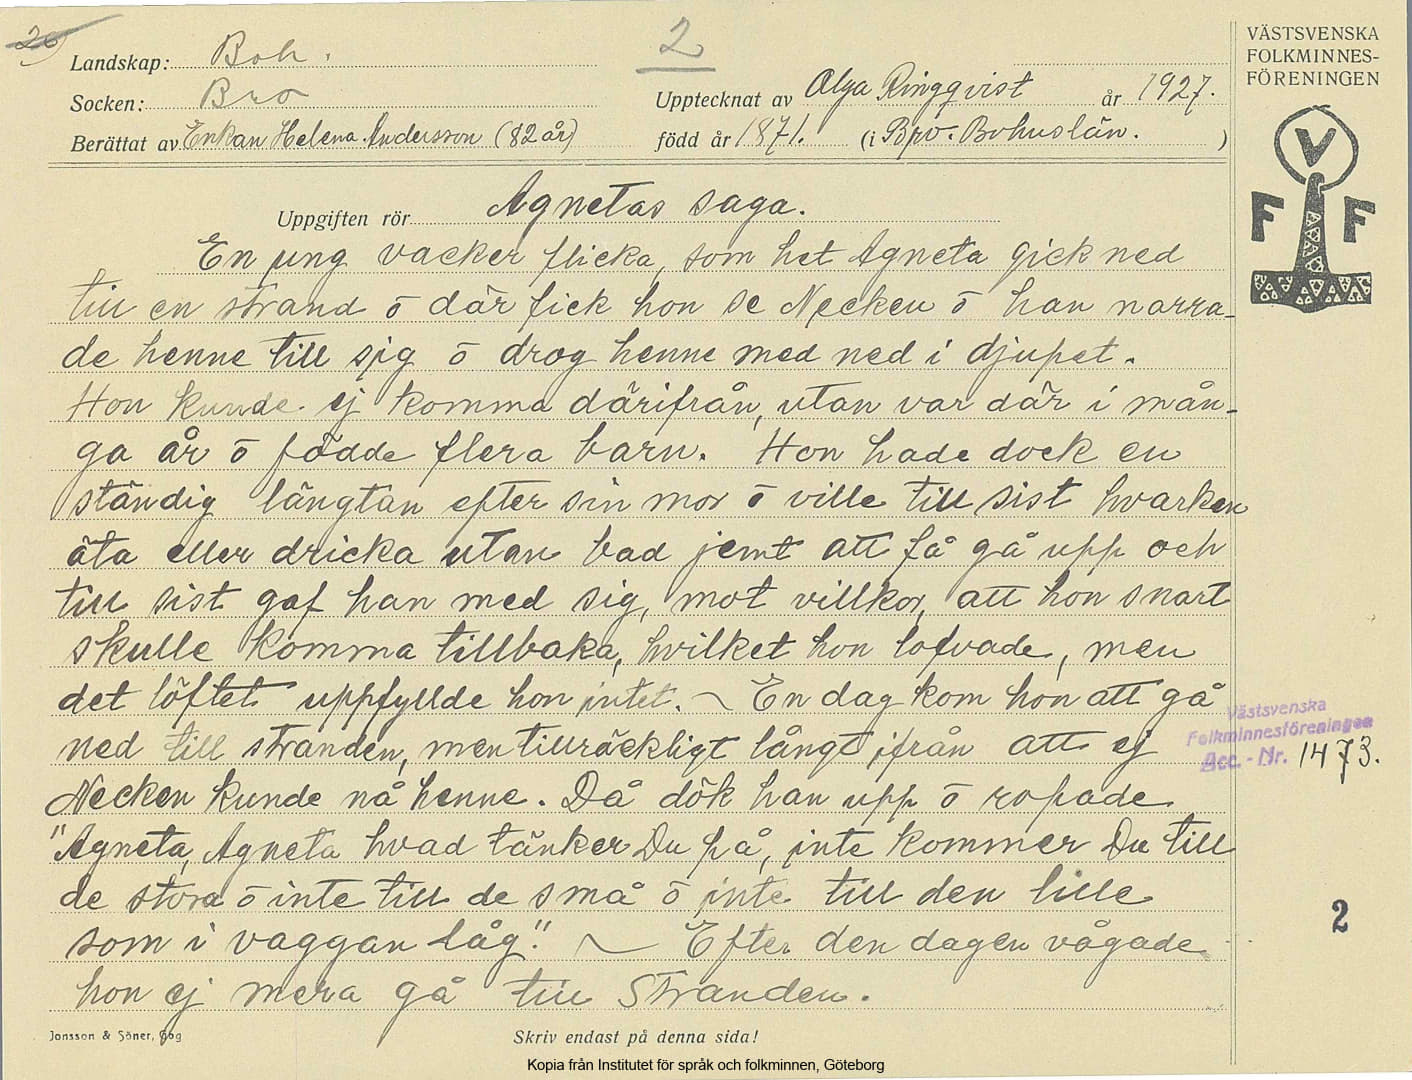 26
Landskap: Boh.
2
Socken: Bro
Upptecknat av Olga Ringqvist år 1927.
Berättat av Enkan Helena Andersson (82 år)
född år 1871. (i Bro. Bohuslän. )
VÄSTSVENSKA
FOLKMINNES-
FÖRENINGEN
V
F F
Uppgiften rör Agnetas saga.
En ung vacker flicka, som het Agneta gick ned
till en strand ō där fick hon se Necken ō han narra-
de henne till sjg ō drog henne med ned i djupet.
Hon kunde ej komma därifrån, utan var där i mån-
ga år ō födde flera barn. Hon hade dock en
ständig längtan efter sin mor ō ville till sist hvarken
äta eller dricka utan bad jemt att få gå upp och
till sist gaf han med sig, mot villkor, att hon snart
skulle komma tillbaka, hvilket hon lofvade, men
det löftet uppfyllde hon intet. ~ En dag kom hon att gå
ned till stranden, men tillräckligt långt ifrån att ej
Necken kunde nå henne. Då dök han upp ō ropade
"Agneta, Agneta hvad tänker Du på, inte kommer Du till
de stora ō inte till de små ō inte till den lille
som i vaggan låg." ~ Efter den dagen vågade
hon ej mera gå till Stranden.
Västsvenska
Folkminnesföreningen
Acc. - Nr. 1473.
2
Jonsson & Söner, Gbg
Skriv endast på denna sida!
Kopia från Institutet för språk och folkminnen, Göteborg